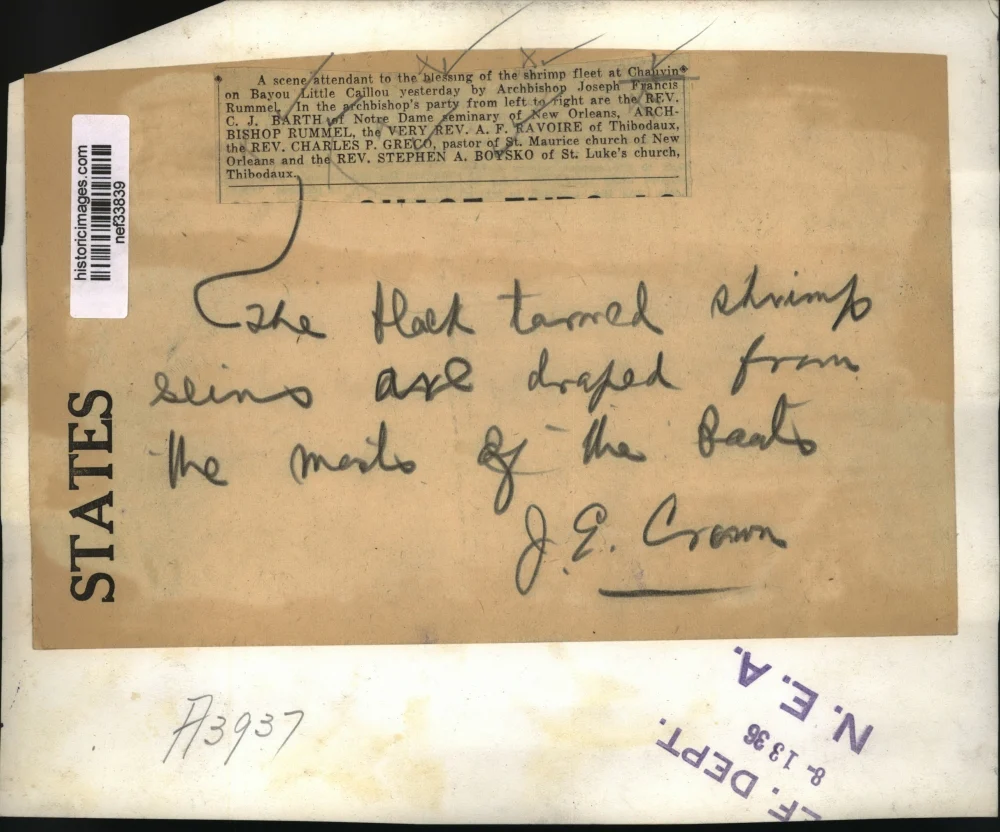 A scene attendant to the blessing of the shrimp fleet at Chauvin
on Bayou Little Caillou yesterday by Archbishop Joseph Francis
Rummel. In the archbishop's party from left to right are the REV.
C. J. BARTH of Notre Dame seminary of New Orleans, ARCH-
BISHOP RUMMEL, the VERY REV. A. F. RAVOIRE of Thibodaux,
the REV. CHARLES P. GRECO, pastor of St. Maurice church of New
Orleans and the REV. STEPHEN A. BOYSKO of St. Luke's church,
Thibodaux.
historicimages.com
nef33839
The black tarred shrimp
seins are draped from
the masts of the boats
J. E. Crown
STATES
A3937
N. E. A.
8-13 36
EF. DEPT.